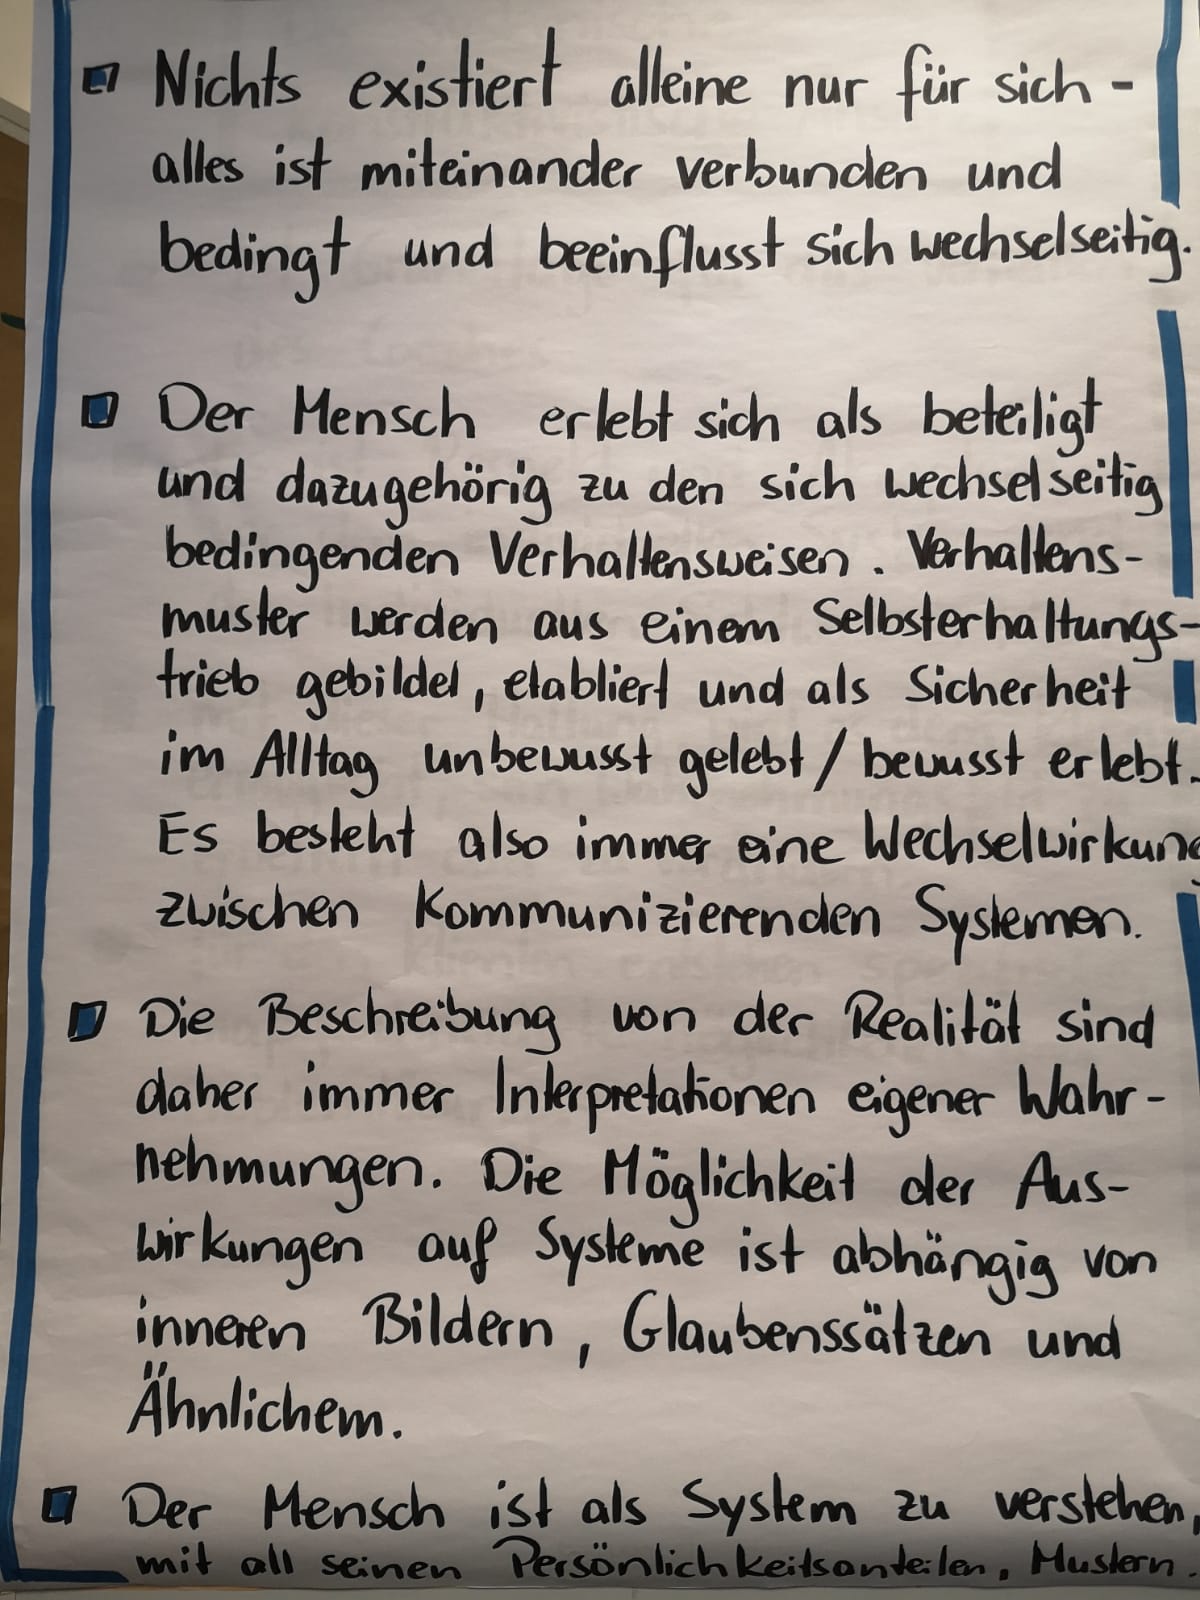 Nichts existiert alleine nur für sich -
alles ist miteinander verbunden und
bedingt und beeinflusst sich wechselseitig.
Der Mensch erlebt sich als beteiligt
und dazugehörig zu den sich wechselseitig
bedingenden Verhaltensweisen. Verhaltens-
muster werden aus einem Selbsterhaltungs-
trieb gebildet, etabliert und als Sicherheit
im Alltag unbewusst gelebt / bewusst erlebt.
Es besteht also immer eine Wechselwirkung
zwischen kommunizierenden Systemen.
Die Beschreibung von der Realität sind
daher immer Interpretationen eigener Wahr-
nehmungen. Die Möglichkeit der Aus-
wirkungen auf Systeme ist abhängig von
inneren Bildern, Glaubenssätzen und
Ähnlichem.
Der Mensch ist als System zu verstehen,
mit all seinen Persönlichkeitsanteilen, Mustern.